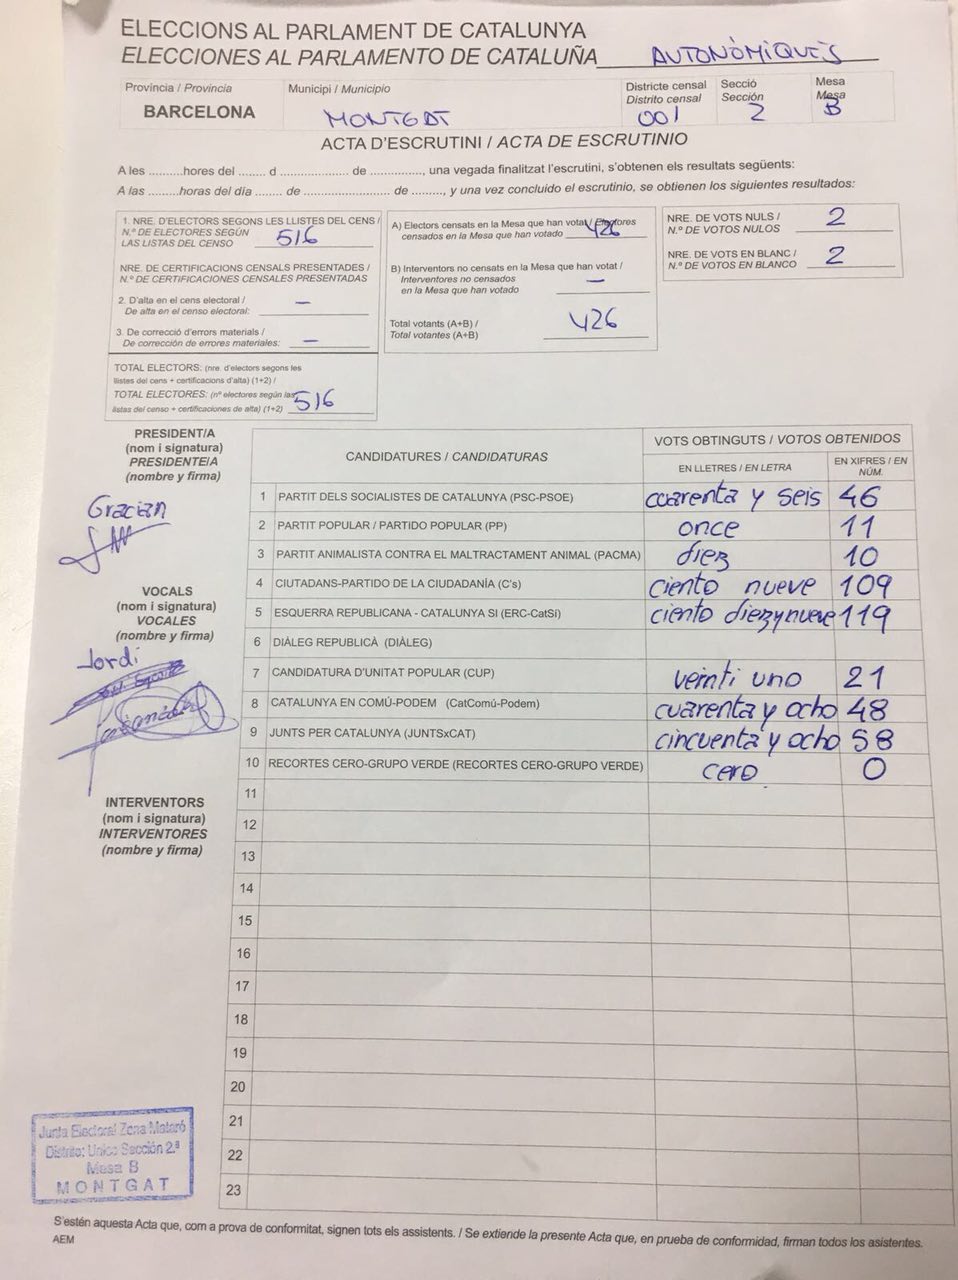 ELECCIONS AL PARLAMENT DE CATALUNYA
ELECCIONES AL PARLAMENTO DE CATALUÑA AUTONÒMIQUES
Província / Provincia
BARCELONA
Municipi / Municipio
MONTGAT
Districte censal
Distrito censal
001
Secció
Sección
2
Mesa
Mesa
B
ACTA D'ESCRUTINI / ACTA DE ESCRUTINIO
A les ..........hores del ........ d ..................... de ..............., una vegada finalitzat l'escrutini, s'obtenen els resultats següents:
A las .........horas del día ........ de ........................... de .........., y una vez concluido el escrutinio, se obtienen los siguientes resultados:
1. NRE. D'ELECTORS SEGONS LES LLISTES DEL CENS /
N.º DE ELECTORES SEGÚN
LAS LISTAS DEL CENSO 516
NRE. DE CERTIFICACIONS CENSALS PRESENTADES /
N.º DE CERTIFICACIONES CENSALES PRESENTADAS
2. D'alta en el cens electoral /
De alta en el censo electoral: –
3. De correcció d'errors materials /
De corrección de errores materiales: –
TOTAL ELECTORS: (nre. d'electors segons les
llistes del cens + certificacions d'alta) (1+2) /
TOTAL ELECTORES: (nº electores según las
listas del censo + certificaciones de alta) (1+2) 516
A) Electors censats en la Mesa que han votat / Electores
censados en la Mesa que han votado 426
B) Interventors no censats en la Mesa que han votat /
Interventores no censados
en la Mesa que han votado –
Total votants (A+B) /
Total votantes (A+B) 426
NRE. DE VOTS NULS /
N.º DE VOTOS NULOS 2
NRE. DE VOTS EN BLANC /
N.º DE VOTOS EN BLANCO 2
PRESIDENT/A
(nom i signatura)
PRESIDENTE/A
(nombre y firma)
Gracian
VOCALS
(nom i signatura)
VOCALES
(nombre y firma)
Jordi
INTERVENTORS
(nom i signatura)
INTERVENTORES
(nombre y firma)
CANDIDATURES / CANDIDATURAS
VOTS OBTINGUTS / VOTOS OBTENIDOS
EN LLETRES / EN LETRA
EN XIFRES / EN
NÚM.
1 PARTIT DELS SOCIALISTES DE CATALUNYA (PSC-PSOE) cuarenta y seis 46
2 PARTIT POPULAR / PARTIDO POPULAR (PP) once 11
3 PARTIT ANIMALISTA CONTRA EL MALTRACTAMENT ANIMAL (PACMA) diez 10
4 CIUTADANS-PARTIDO DE LA CIUDADANÍA (C's) ciento nueve 109
5 ESQUERRA REPUBLICANA - CATALUNYA SI (ERC-CatSí) ciento diezynueve 119
6 DIÀLEG REPUBLICÀ (DIÀLEG)
7 CANDIDATURA D'UNITAT POPULAR (CUP) veinti uno 21
8 CATALUNYA EN COMÚ-PODEM (CatComú-Podem) cuarenta y ocho 48
9 JUNTS PER CATALUNYA (JUNTSxCAT) cincuenta y ocho 58
10 RECORTES CERO-GRUPO VERDE (RECORTES CERO-GRUPO VERDE) cero 0
11
12
13
14
15
16
17
18
19
20
21
22
23
Junta Electoral Zona Mataró
Distrito: Unico Sección 2.ª
Mesa B
MONTGAT
S'estén aquesta Acta que, com a prova de conformitat, signen tots els assistents. / Se extiende la presente Acta que, en prueba de conformidad, firman todos los asistentes.
AEM